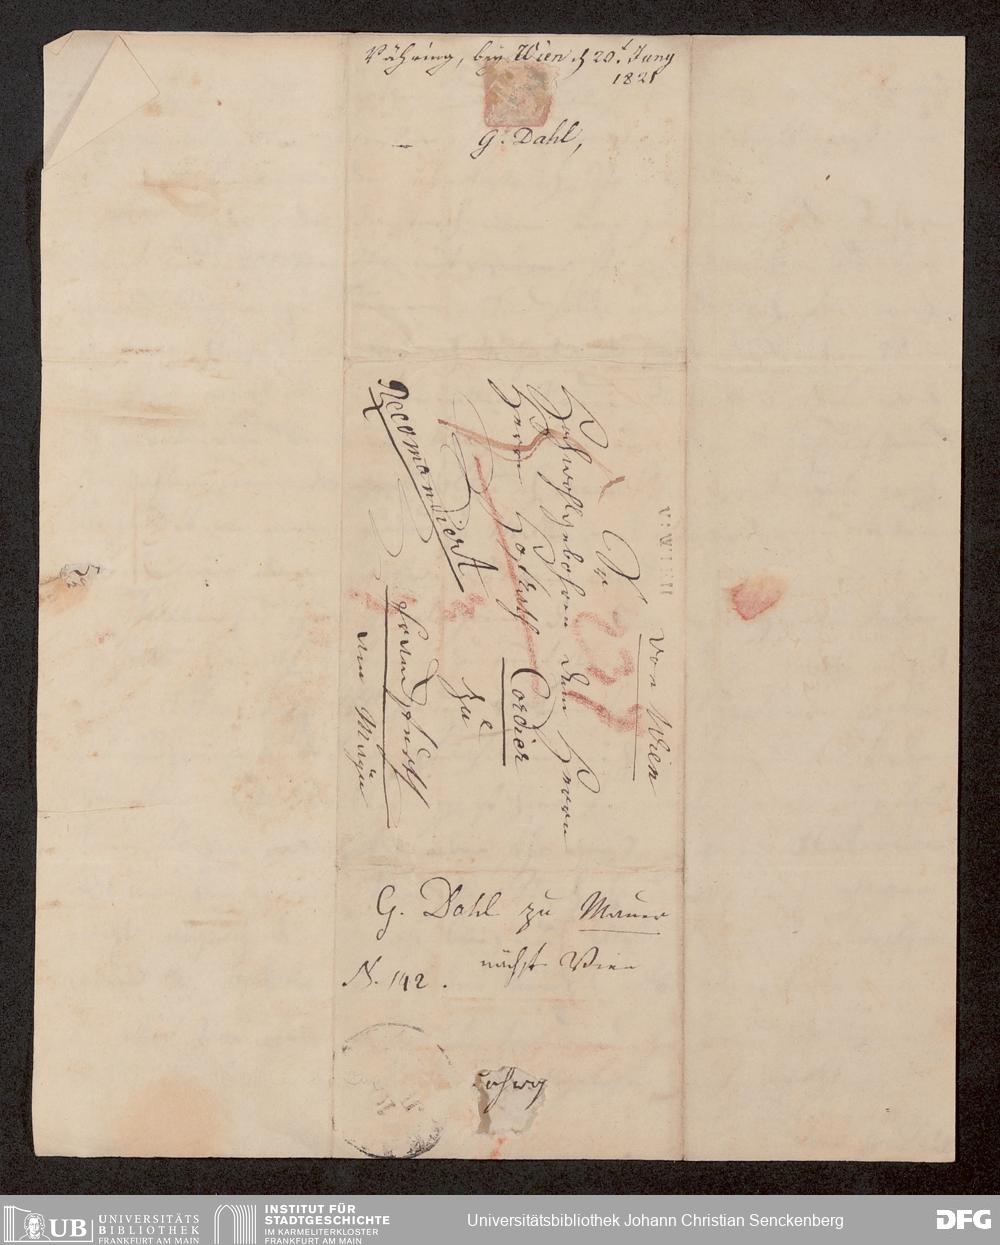 Währing, bey Wien d 20t Juny
1821
G. Dahl,
V: WIEN
Von Wien
Sr
Hochwohlgebohren dem Herrn
Herrn Hofrath Cordier
zu
Recomandiert
Frankfurt
am Mayn
G. Dahl zu Mauer
nächst Wien
N. 142.
UB UNIVERSITÄTS
BIBLIOTHEK
FRANKFURT AM MAIN
INSTITUT FÜR
STADTGESCHICHTE
IM KARMELITERKLOSTER
FRANKFURT AM MAIN
Universitätsbibliothek Johann Christian Senckenberg
DFG